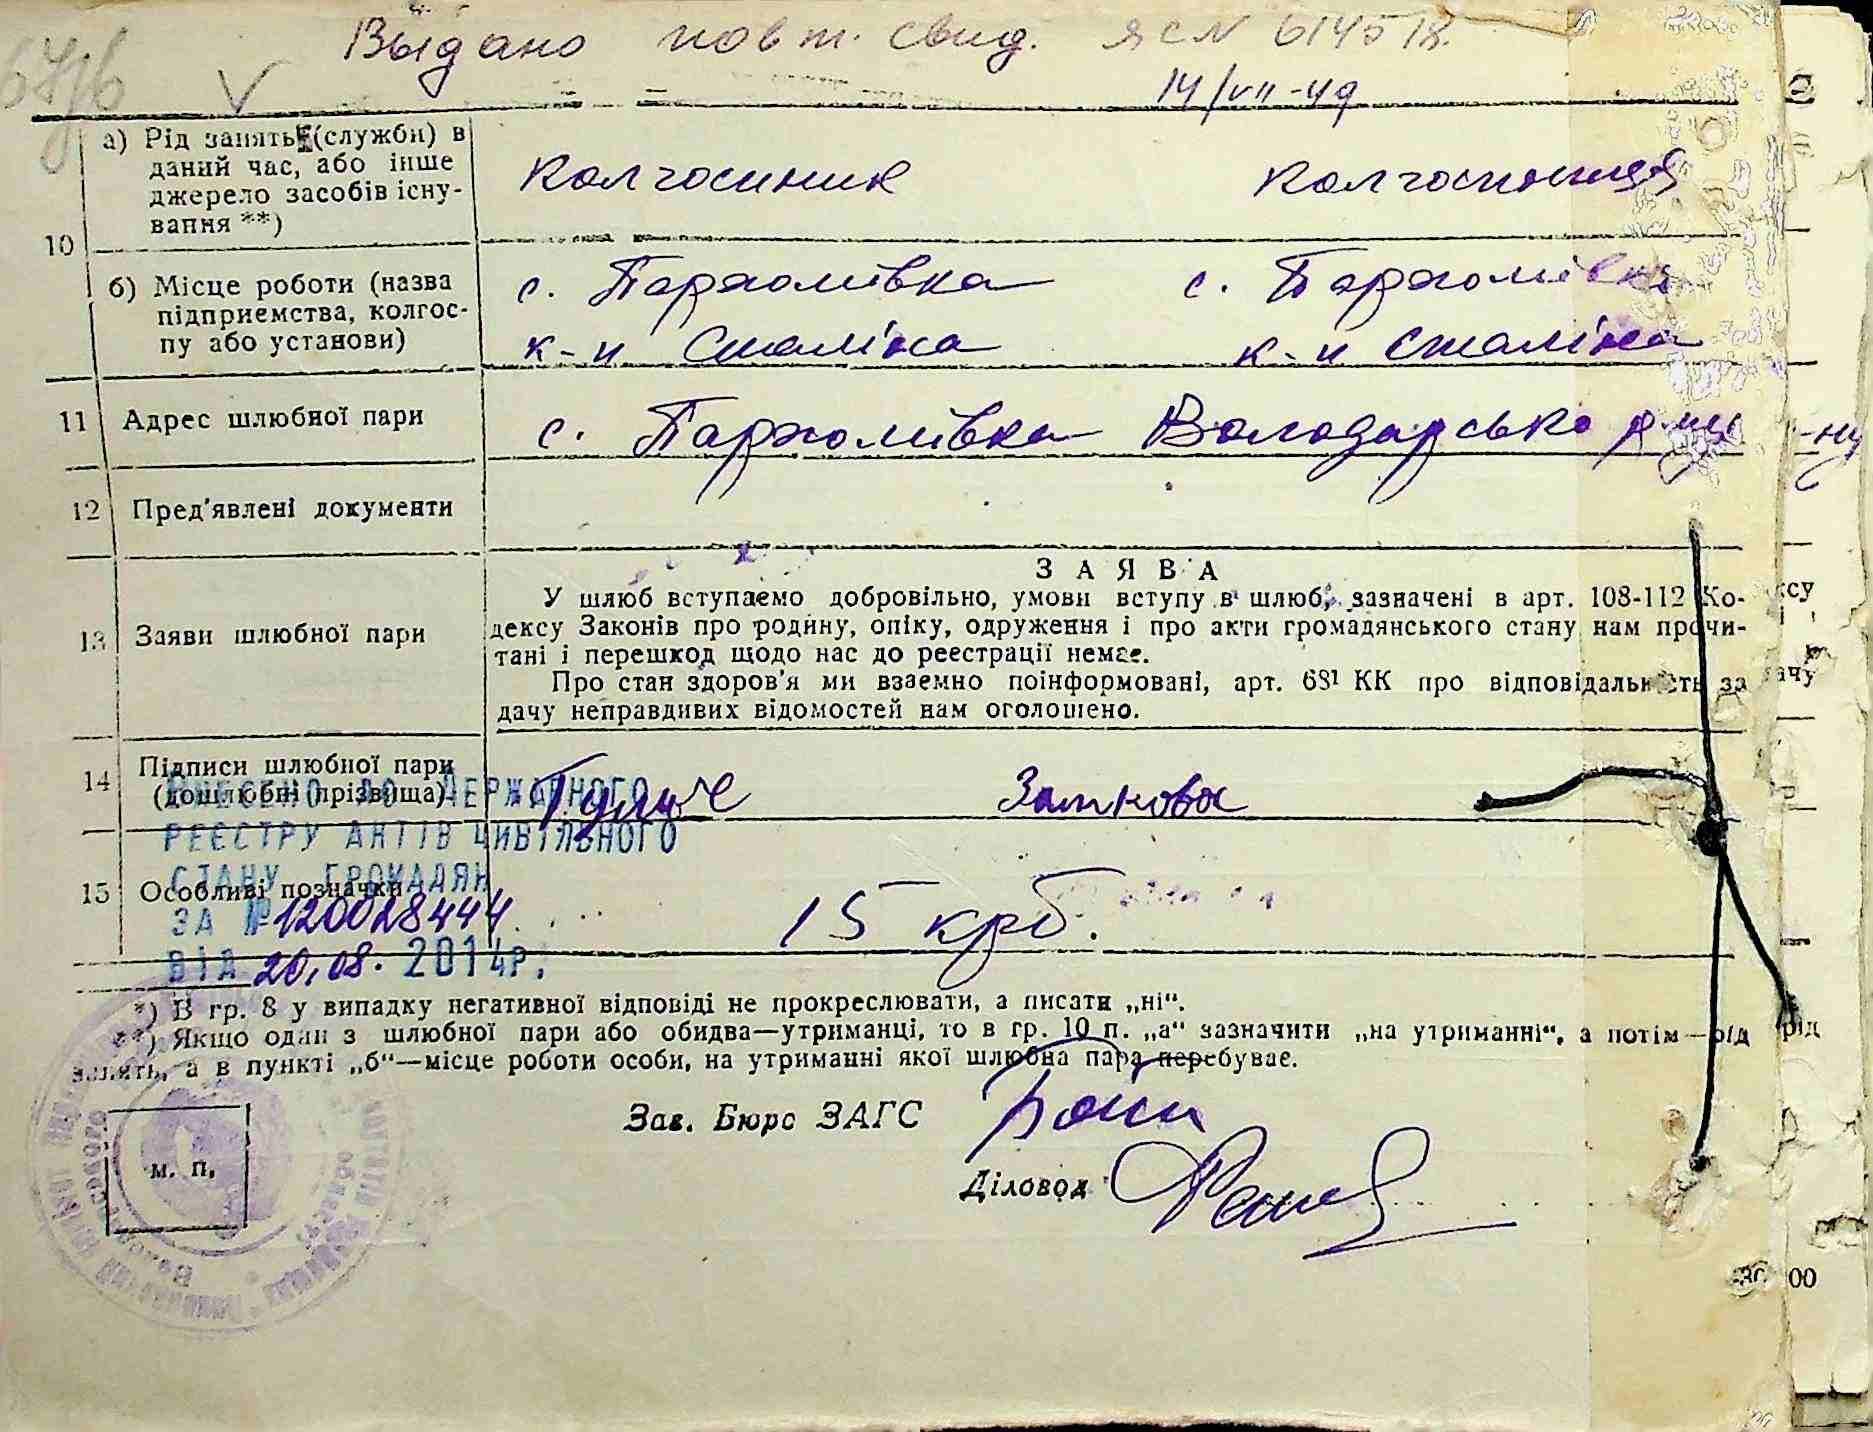 Выдано повт. свид. ЯС № 614518.
14/VII-49
10
а) Рід занять (служби) в даний час, або інше джерело засобів існування **)
колгоспник колгоспниця
б) Місце роботи (назва підприємства, колгоспу або установи)
с. Пархомівка с. Пархомівка
к-п Сталіна к-п Сталіна
11 Адрес шлюбної пари
с. Пархомівка Володарсько р-ну
12 Пред'явлені документи
13 Заяви шлюбної пари
ЗАЯВА
У шлюб вступаємо добровільно, умови вступу в шлюб, зазначені в арт. 108-112 Ко-
дексу Законів про родину, опіку, одруження і про акти громадянського стану нам прочи-
тані і перешкод щодо нас до реєстрації немає.
Про стан здоров'я ми взаємно поінформовані, арт. 68¹ КК про відповідальність за
дачу неправдивих відомостей нам оголошено.
14 Підписи шлюбної пари
(дошлюбні прізвища)
Замкова
ВНЕСЕНО ДО ДЕРЖАВНОГО
РЕЄСТРУ АКТІВ ЦИВІЛЬНОГО
СТАНУ ГРОМАДЯН
ЗА № 120028444
ВІД 20.08. 2014р.
15 Особливі позначки
15 крб.
*) В гр. 8 у випадку негативної відповіді не прокреслювати, а писати „ні“.
**) Якщо один з шлюбної пари або обидва—утриманці, то в гр. 10 п. „а“ зазначити „на утриманні“, а потім—рід
занять, а в пункті „б“—місце роботи особи, на утриманні якої шлюбна пара перебуває.
Зав. Бюро ЗАГС
Діловод
м. п.